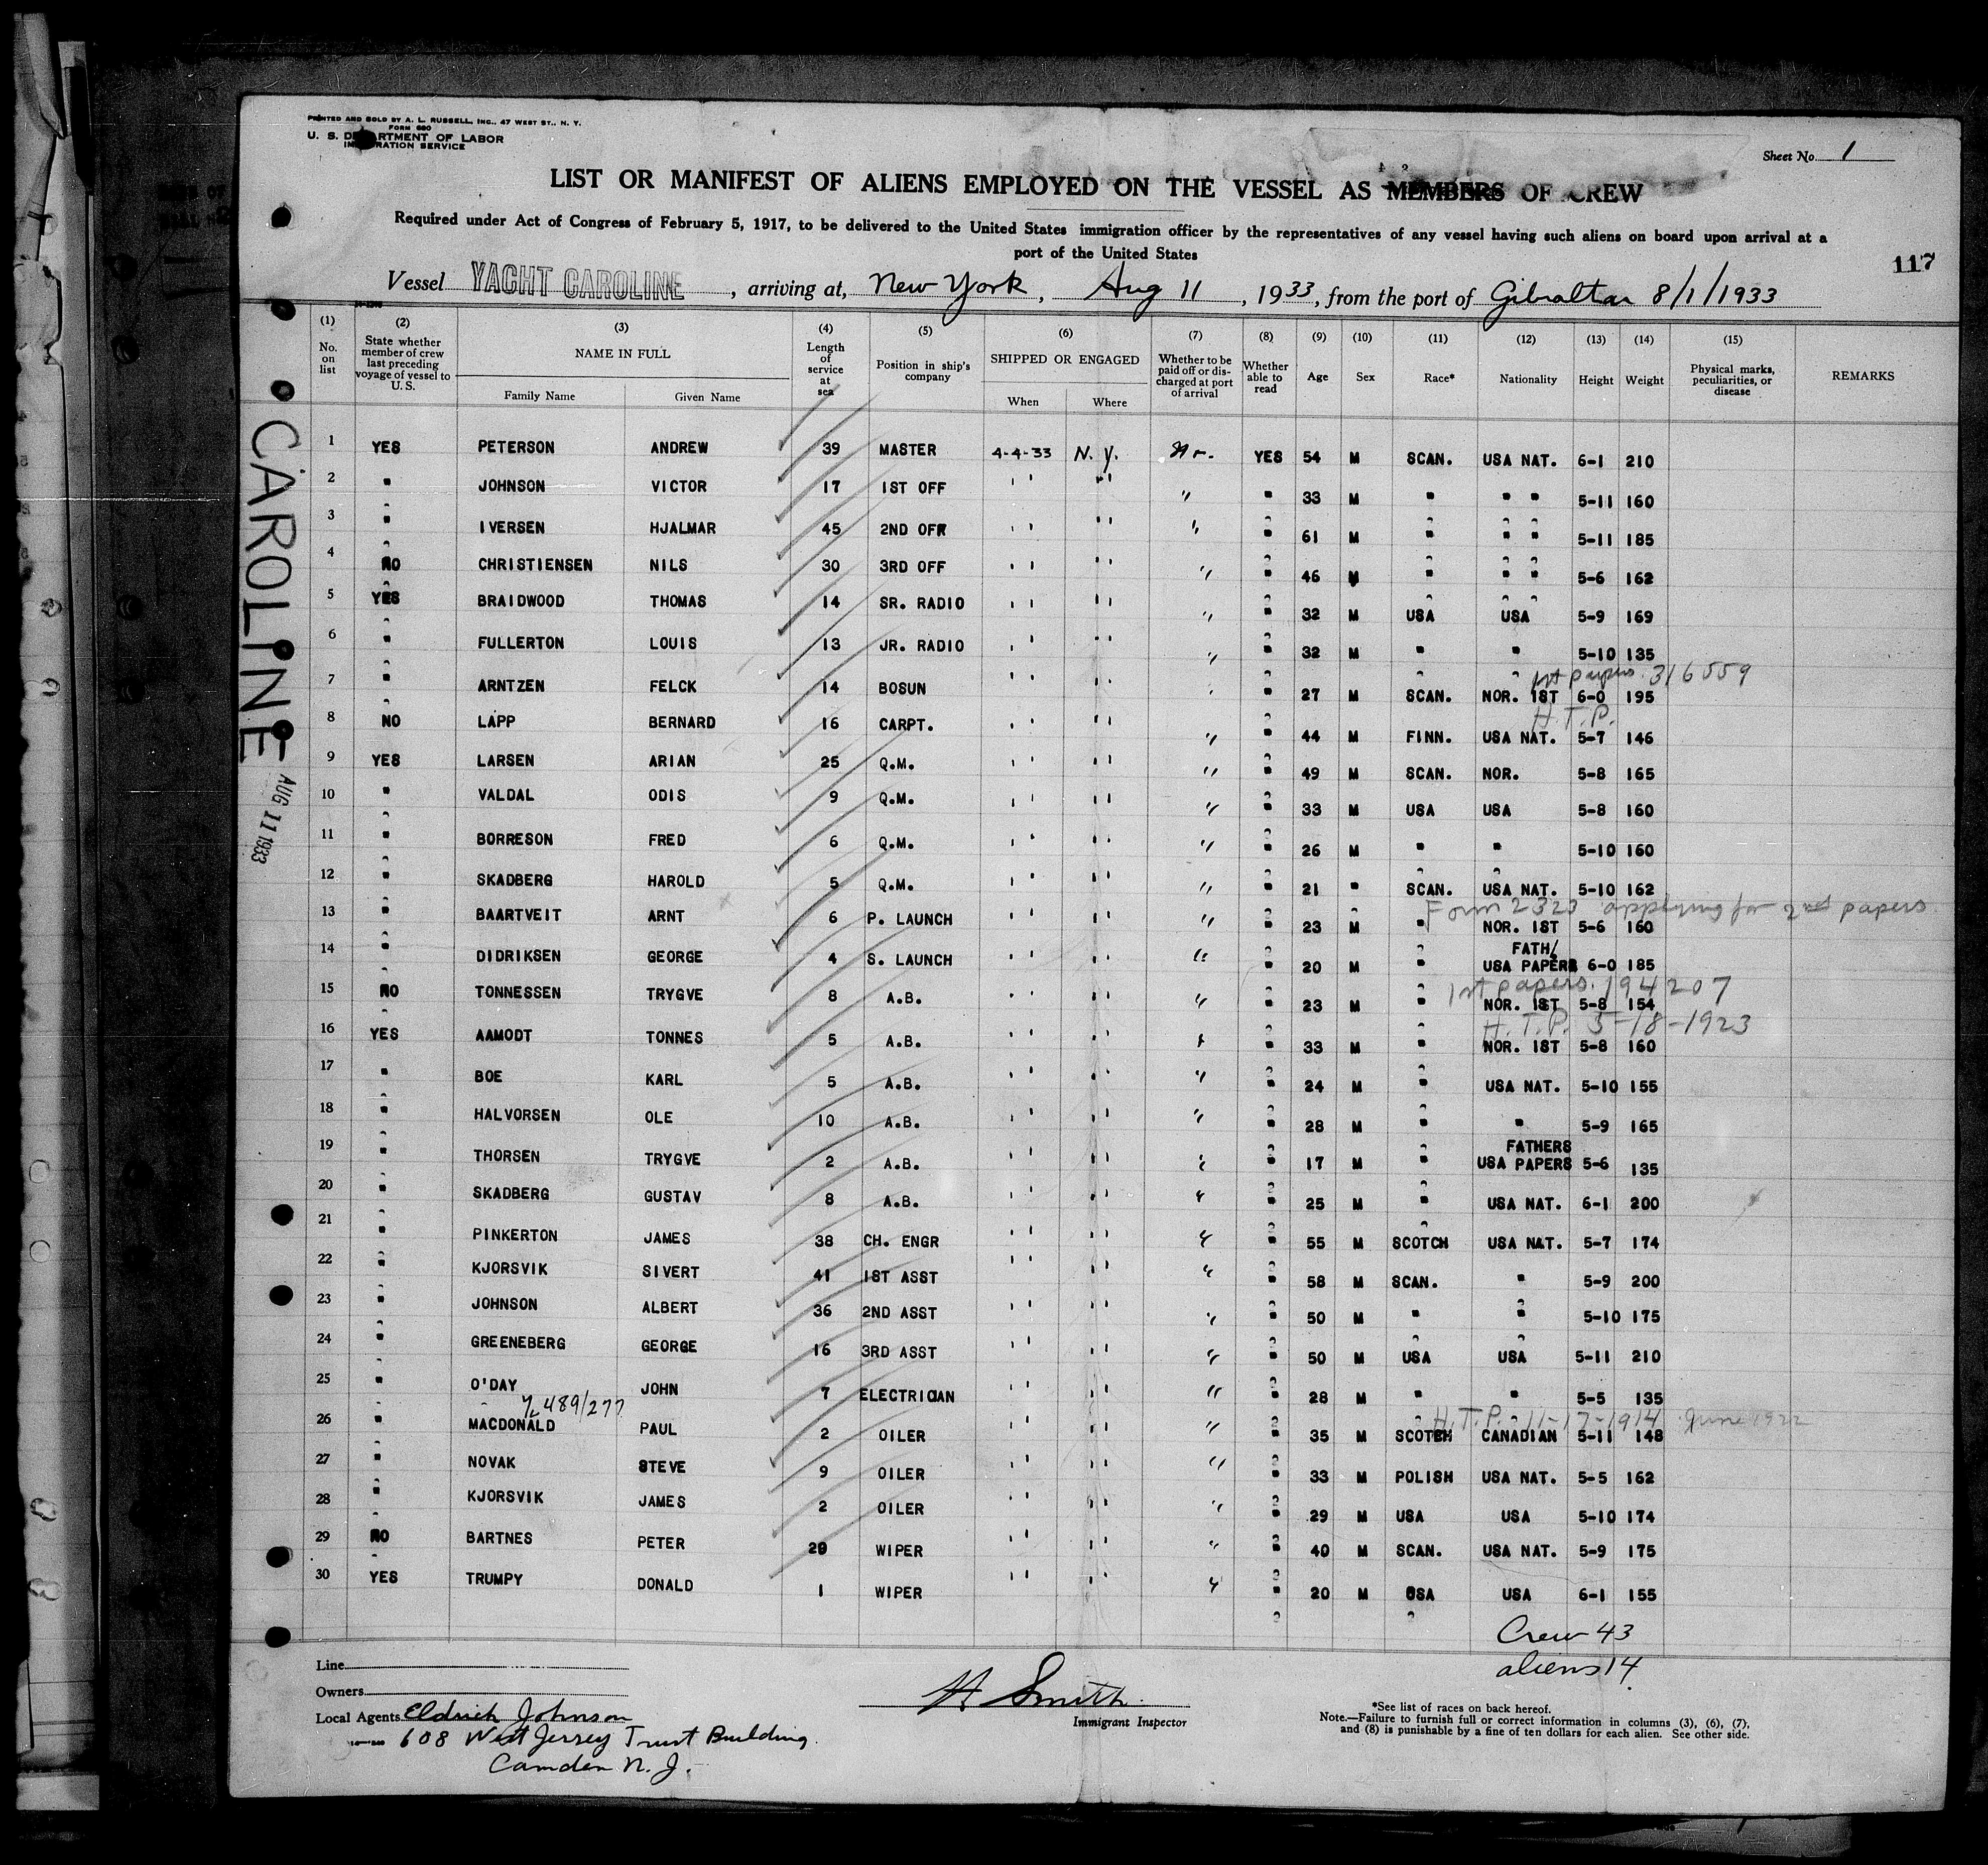 PRINTED AND SOLD BY A. L. RUSSELL, INC., 47 WEST ST., N. Y.
FORM 680
U. S. DEPARTMENT OF LABOR
IMMIGRATION SERVICE
Sheet No. 1
LIST OR MANIFEST OF ALIENS EMPLOYED ON THE VESSEL AS MEMBERS OF CREW
Required under Act of Congress of February 5, 1917, to be delivered to the United States immigration officer by the representatives of any vessel having such aliens on board upon arrival at a
port of the United States
117
Vessel YACHT CAROLINE, arriving at, New York, Aug 11, 1933, from the port of Gibraltar 8/1/1933
(1) (2) (3) (4) (5) (6) (7) (8) (9) (10) (11) (12) (13) (14) (15)
No. on list State whether member of crew last preceding voyage of vessel to U. S. NAME IN FULL Family Name Given Name Length of service at sea Position in ship's company SHIPPED OR ENGAGED When Where Whether to be paid off or discharged at port of arrival Whether able to read Age Sex Race* Nationality Height Weight Physical marks, peculiarities, or disease REMARKS
1 YES PETERSON ANDREW 39 MASTER 4-4-33 N. Y. YES 54 M SCAN. USA NAT. 6-1 210
2 " JOHNSON VICTOR 17 1ST OFF " " " " 33 M " " " 5-11 160
3 " IVERSEN HJALMAR 45 2ND OFF " " " " 61 M " " " 5-11 185
4 NO CHRISTIENSEN NILS 30 3RD OFF " " " " 46 M " " " 5-6 162
5 YES BRAIDWOOD THOMAS 14 SR. RADIO " " " " 32 M USA USA 5-9 169
6 " FULLERTON LOUIS 13 JR. RADIO " " " " 32 M " " 5-10 135
1st papers 316559
7 " ARNTZEN FELCK 14 BOSUN " " " " 27 M SCAN. NOR. 1ST 6-0 195
H.T.P.
8 NO LAPP BERNARD 16 CARPT. " " " " 44 M FINN. USA NAT. 5-7 146
9 YES LARSEN ARIAN 25 Q.M. " " " " 49 M SCAN. NOR. 5-8 165
10 " VALDAL ODIS 9 Q.M. " " " " 33 M USA USA 5-8 160
11 " BORRESON FRED 6 Q.M. " " " " 26 M " " 5-10 160
12 " SKADBERG HAROLD 5 Q.M. " " " " 21 " SCAN. USA NAT. 5-10 162
Form 2323 applying for 2nd papers
13 " BAARTVEIT ARNT 6 P. LAUNCH " " " " 23 M " NOR. 1ST 5-6 160
14 " DIDRIKSEN GEORGE 4 S. LAUNCH " " " " 20 M " FATH/ USA PAPERS 6-0 185
1st papers. 194207
15 NO TONNESSEN TRYGVE 8 A.B. " " " " 23 M " NOR. 1ST 5-8 154
H.T.P. 5-18-1923
16 YES AAMODT TONNES 5 A.B. " " " " 33 M " NOR. 1ST 5-8 160
17 " BOE KARL 5 A.B. " " " " 24 M " USA NAT. 5-10 155
18 " HALVORSEN OLE 10 A.B. " " " " 28 M " " 5-9 165
19 " THORSEN TRYGVE 2 A.B. " " " " 17 M " FATHERS USA PAPERS 5-6 135
20 " SKADBERG GUSTAV 8 A.B. " " " " 25 M " USA NAT. 6-1 200
21 " PINKERTON JAMES 38 CH. ENGR " " " " 55 M SCOTCH USA NAT. 5-7 174
22 " KJORSVIK SIVERT 41 1ST ASST " " " " 58 M SCAN. " 5-9 200
23 " JOHNSON ALBERT 36 2ND ASST " " " " 50 M " " 5-10 175
24 " GREENEBERG GEORGE 16 3RD ASST " " " " 50 M USA USA 5-11 210
25 " O'DAY JOHN 7 ELECTRICIAN " " " " 28 M " " 5-5 135
489/277 H.T.P. 11-17-1914 June 1922
26 " MACDONALD PAUL 2 OILER " " " " 35 M SCOTCH CANADIAN 5-11 148
27 " NOVAK STEVE 9 OILER " " " " 33 M POLISH USA NAT. 5-5 162
28 " KJORSVIK JAMES 2 OILER " " " " 29 M USA USA 5-10 174
29 NO BARTNES PETER 20 WIPER " " " " 40 M SCAN. USA NAT. 5-9 175
30 YES TRUMPY DONALD 1 WIPER " " " " 20 M USA USA 6-1 155
Crew 43
aliens 14
Line
Owners
Local Agents Eldrich Johnson
608 West Jersey Trust Building
Camden N. J.
H Smith
Immigrant Inspector
*See list of races on back hereof.
Note.—Failure to furnish full or correct information in columns (3), (6), (7),
and (8) is punishable by a fine of ten dollars for each alien. See other side.
CAROLINE
AUG 11 1933